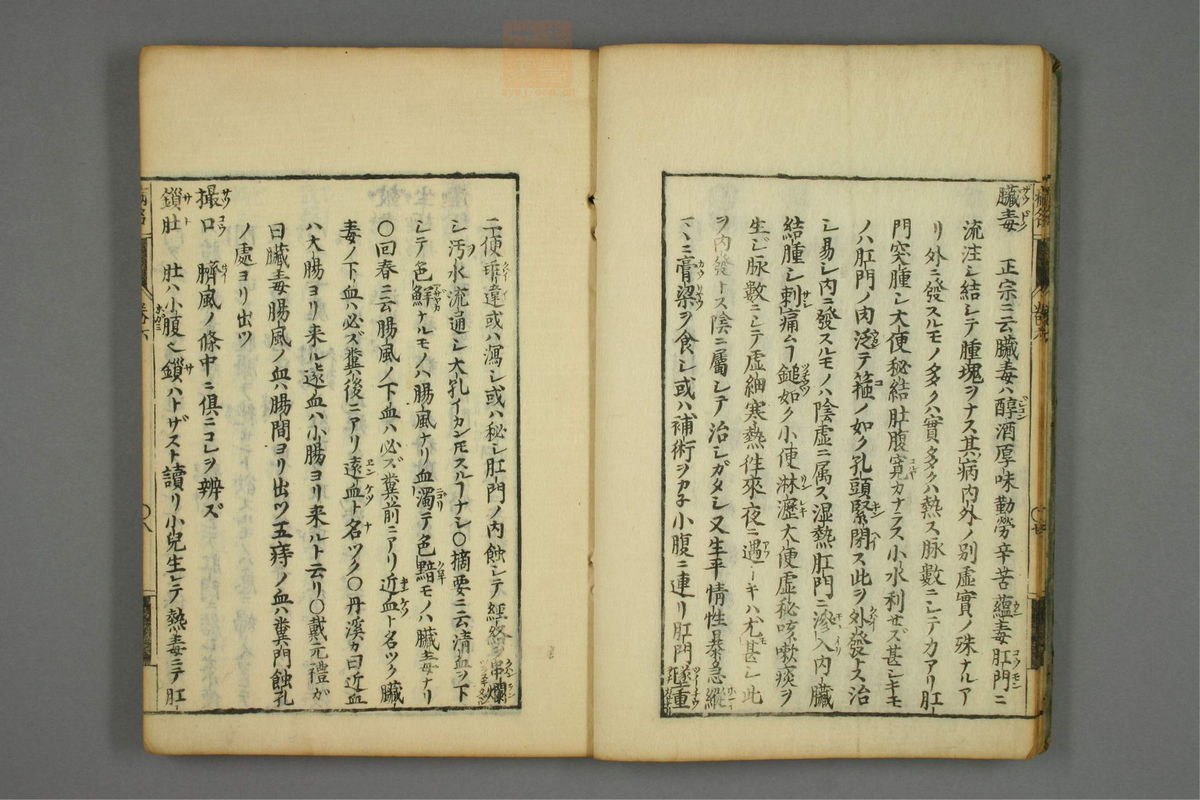 臟毒 正宗ニ云臟毒ハ醇酒厚味勤勞辛苦蘊毒肛門ニ
流注シ結シテ腫塊ヲナス其病内外ノ別虚實ノ殊ナルア
リ外ニ發スルモノ多クハ實多クハ熱ス脉數ニシテ力アリ肛
門突腫シ大便秘結肚腹寛カナラス小水利せズ甚シキモ
ノハ肛門ノ肉泛テ箍ノ如ク孔頭緊閉ス此ヲ外發トス治
シ易シ内ニ發スルモノハ陰虚ニ属ス湿熱肛門ニ滲入内臟
結腫シ刺痛ムヿ鎚如ク小便淋瀝大便虚秘咳嗽痰ヲ
生ジ脉數ニシテ虚細寒熱徃來夜ニ遇トキハ尤甚シ此
ヲ内發トス陰ニ屬シテ治シガタシ又生平情性暴急縱
ニ膏粱ヲ食シ或ハ補術ヲカ子小腹ニ連リ肛門墜重
二便乖違或ハ瀉シ或ハ秘シ肛門ノ内蝕シテ經絡ヲ串爛
シ汚水流通シ大孔イカントモスルヿナシ〇摘要ニ云清血ヲ下
シテ色鮮ナルモノハ腸風ナリ血濁テ色黯モノハ臟毒ナリ
〇回春ニ云腸風ノ下血ハ必ズ糞前ニアリ近血ト名ツク臟
毒ノ下血ハ必ズ糞後ニアリ遠血ト名ツク〇丹溪カ曰近血
ハ大腸ヨリ来ル遠血ハ小腸ヨリ来ルト云リ〇戴元禮ガ
曰臟毒腸風ノ血ハ腸間ヨリ出ツ五痔ノ血ハ糞門蝕孔
ノ處ヨリ出ツ
撮口 臍風ノ條中ニ倶ニコレヲ辨ズ
鎖肚 肚ハ小腹也鎖ハトザスト讀リ小兒生レテ熱毒ニテ肛